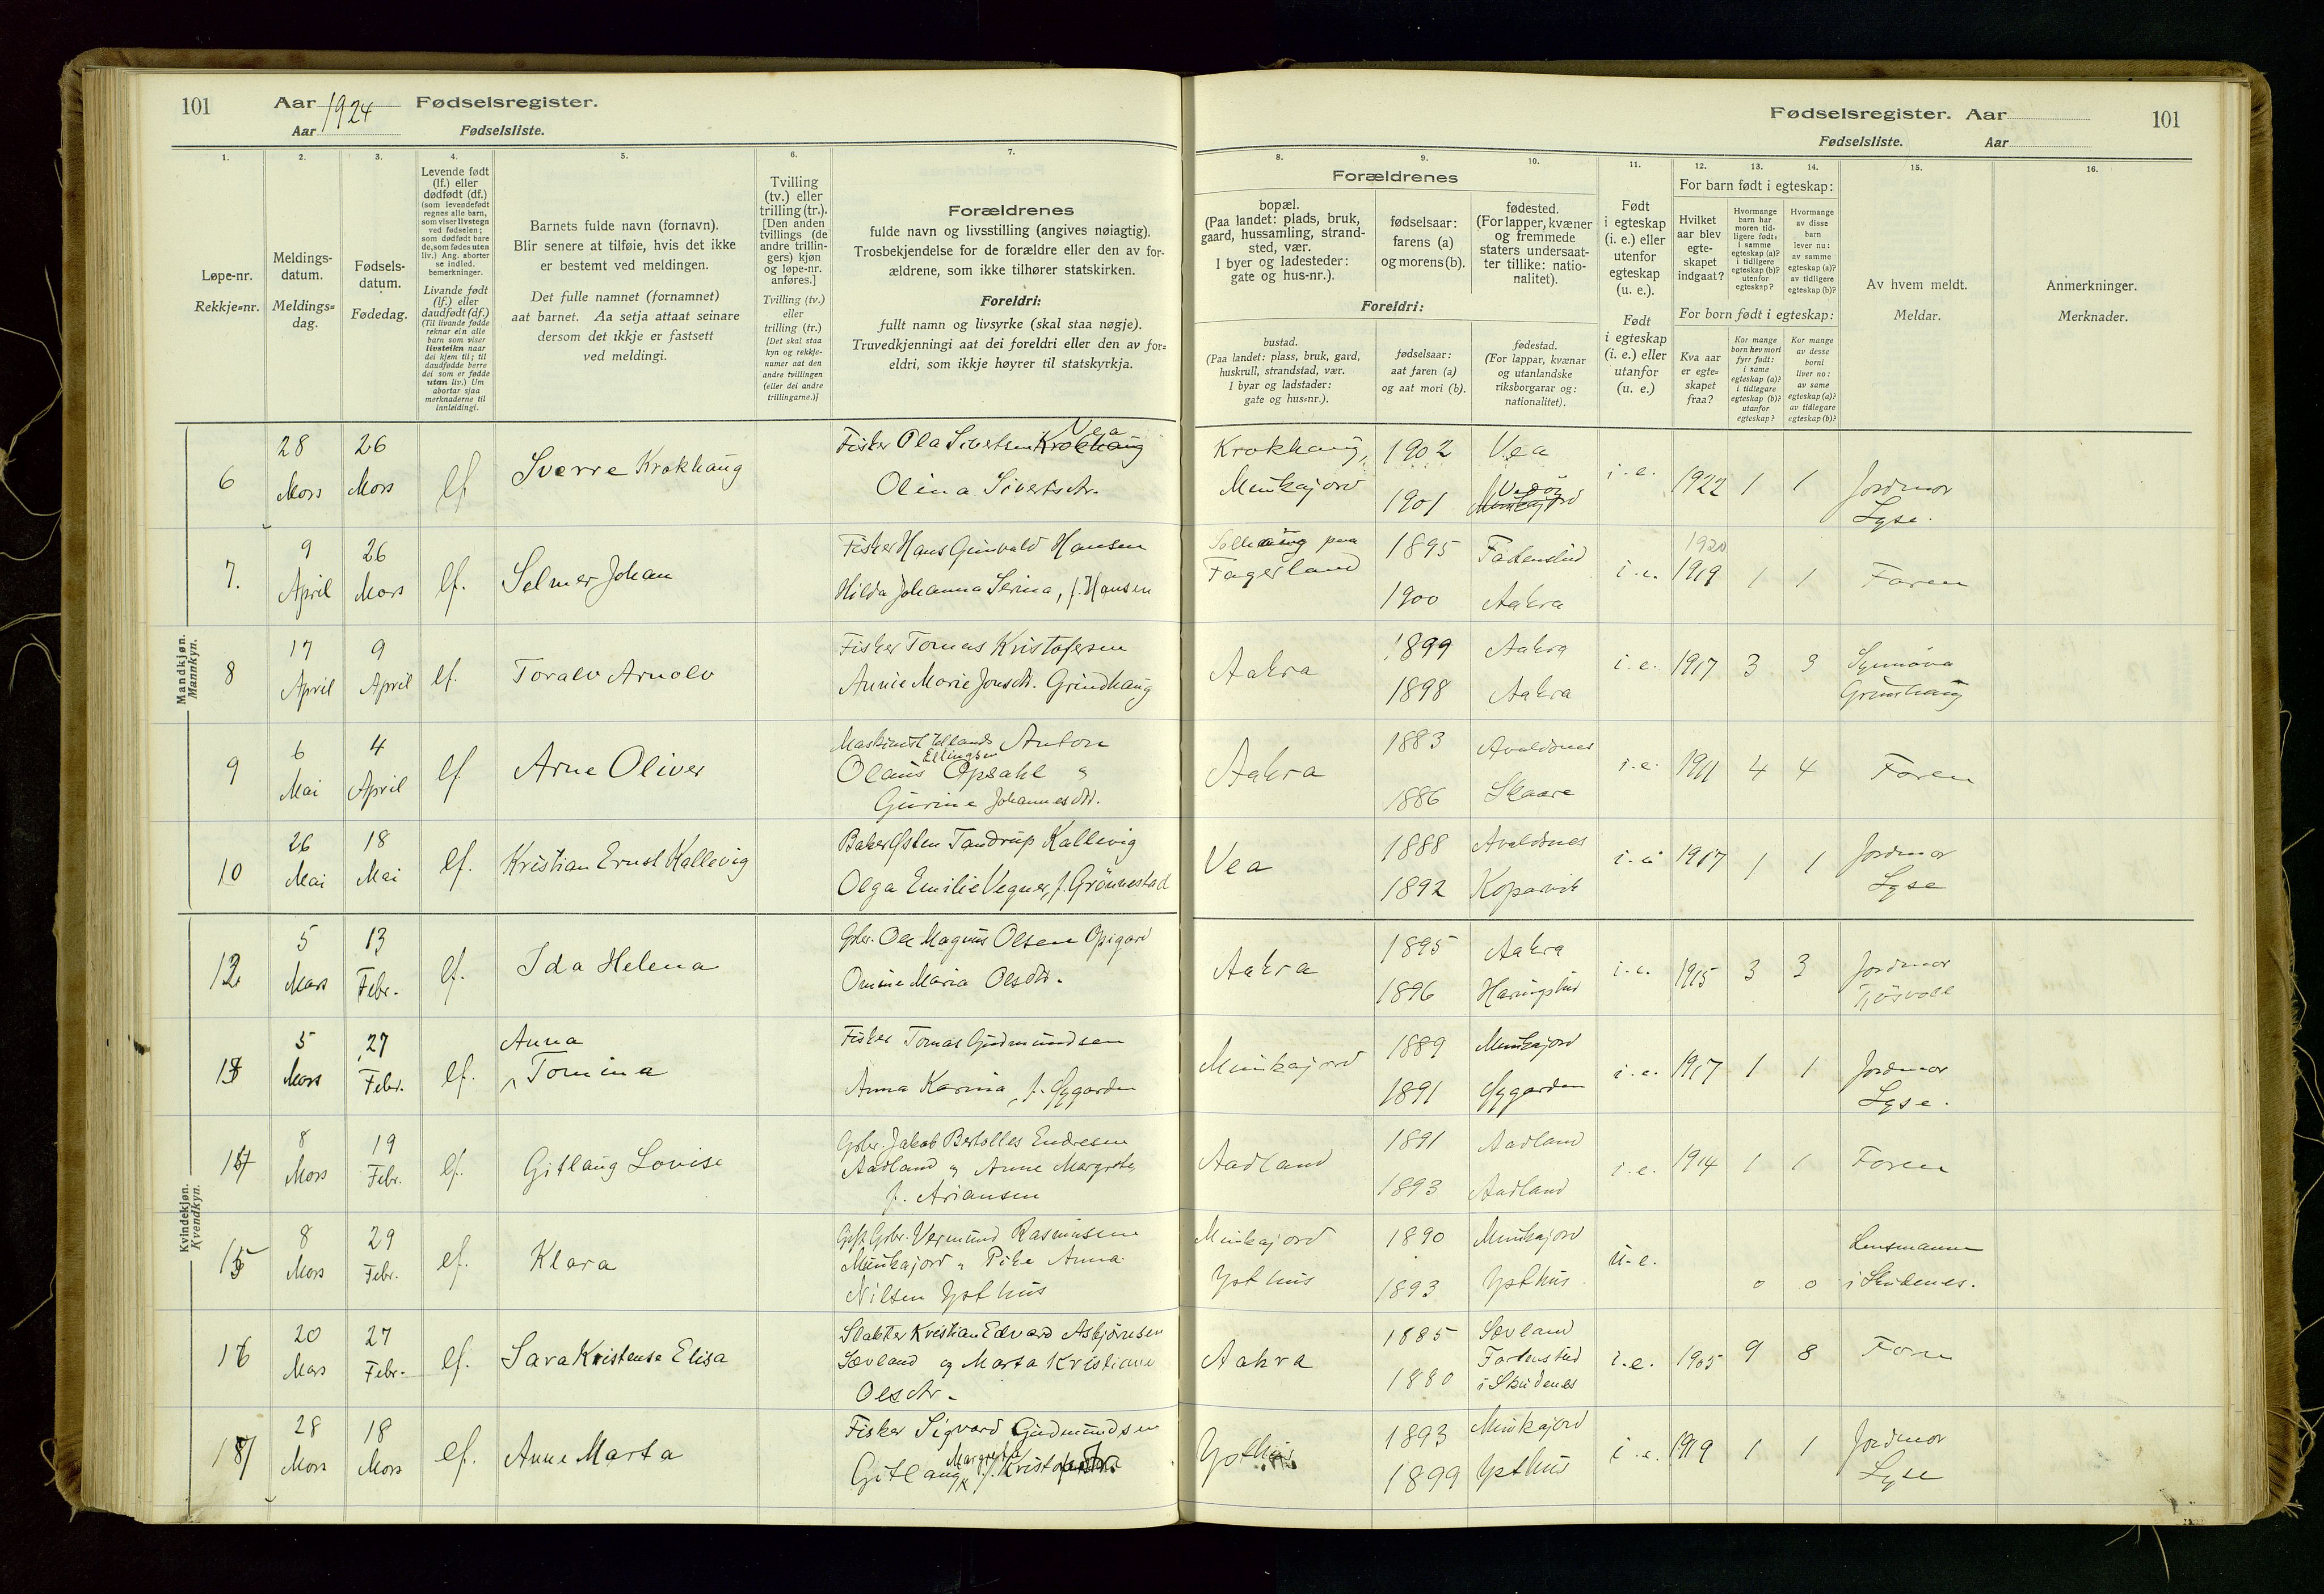 101 Aar 1924 Fødselsregister.
Aar Fødselsliste.
Fødselsregister. Aar 101
Fødselsliste. Aar
1. 2. 3. 4. 5. 6. 7. 8. 9. 10. 11. 12. 13. 14. 15. 16.
Løpe-nr.
Rekkje=nr.
Meldings-
datum.
Meldings=
dag.
Fødsels-
datum.
Fødedag.
Levende født
(lf.) eller
dødfødt (df.)
(som levendefødt
regnes alle barn,
som viser livstegn
ved fødselen;
som dødfødt bare
de, som fødes uten
liv.) Ang. aborter
se indled.
bemerkninger.
Livande født
(lf.) eller
daudfødt (df.)
(Til livande fødde
reknar ein alle
barn som viser
livsteikn naar
dei kjem til; til
daudfødde berre
dei som er fødde
utan liv.) Um
abortar sjaa
merknaderne til
innleidingi.
Barnets fulde navn (fornavn).
Blir senere at tilføie, hvis det ikke
er bestemt ved meldingen.
Det fulle namnet (fornamnet)
aat barnet. Aa setja attaat seinare
dersom det ikkje er fastsett
ved meldingi.
Tvilling
(tv.) eller
trilling (tr.).
[Den anden
tvillings (de
andre trillin-
gers) kjøn
og løpe-nr.
anføres.]
Tvilling (tv.)
eller
trilling (tr.)
[Det skal staa
kyn og rekkje-
numer aat den
andre tvillingen
(eller dei andre
trillingarne.)]
Forældrenes
fulde navn og livsstilling (angives nøiagtig).
Trosbekjendelse for de forældre eller den av for-
ældrene, som ikke tilhører statskirken.
Foreldri:
fullt namn og livsyrke (skal staa nøgje).
Truvedkjenningi aat dei foreldri eller den av for=
eldri, som ikkje høyrer til statskyrkja.
Forældrenes
bopæl.
(Paa landet: plads, bruk,
gaard, hussamling, strand-
sted, vær.
I byer og ladesteder:
gate og hus-nr.).
Foreldri:
bustad.
(Paa landet: plass, bruk, gard,
huskrull, strandstad, vær.
I byar og ladstader:
gate og hus=nr.).
fødselsaar:
farens (a)
og morens (b).
fødselsaar:
aat faren (a)
og aat mori (b).
fødested.
(For lapper, kvæner
og fremmede
staters undersaat-
ter tillike: natio-
nalitet).
fødestad.
(For lappar, kvænar
og utanlandske
riksborgarar og:
nationalitet).
Født
i egteskap
(i. e.) eller
utenfor
egteskap
(u. e.).
Født
i egteskap
(i. e.) eller
utanfor
(u. e.)
For barn født i egteskap:
Hvilket
aar blev
egte-
skapet
indgaat?
Hvormange
barn har
moren tid-
ligere født:
i samme
egteskap (a)?
i tidligere
egteskap (b)?
utenfor
egteskap?
Hvormange
av disse
barn
lever nu:
av samme
egteskap (a)?
av tidligere
egteskap (b)?
For born født i egteskap:
Kva aar
er egte=
skapet
fraa?
Kor mange
born hev mori
fyrr født:
i same
egteskap (a)?
i tidlegare
egteskap (b)?
utanfor
egteskap?
Kor mange
av desse
borni
liver no:
av same
egteskap (a)?
av tidlegare
egteskap (b)?
Av hvem meldt.
Meldar.
Anmerkninger.
Merknader.
Mandkjøn.
Mannkyn.
6 28 Mars 26 Mars lf Sverre Krokhaug
Fisker Ola Sivertsen Krokhaug Vea
Olina Sivertsdtr.
Krokhaug, Munkajord 1902 Vea
1901 Munkajord
i. e. 1922 1 1 Jordmor
Lyse.
7. 9 April 26 Mars lf. Selmer Johan
Fisker Hans Gunvald Hansen
Hilda Johanna Serina, f. Hansen
Solhaug paa
Fagerland 1895
1900 Aakra
i. e. 1920 1919 1 1 Faren
8 17 April 9 April lf. Toralv Arnolv
Fisker Tomas Kristofersen
Annie Marie Jonsdtr. Grindhaug
Aakra 1899 Aakra
1898 Aakra
i. e. 1917 3 3 Synnøva
Grindhaug
9 6 Mai 4 April lf Arne Oliver
Maskinist Anton
Ellingsen
Olaus Opsahl og
Gurine Johannesdtr.
Aakra 1883 Avaldsnes
1886 Skaare
i. e. 1911 4 4 Faren
10 26 Mai 18 Mai lf. Kristian Ernst Kallevig
Baker Østen Tandrup Kallevig
Olga Emilie Vegner, f. Grønnestad
Vea 1888 Avaldsnes
1892 Kopervik
i. e. 1917 1 1 Jordmor
Lyse
Kvindekjøn.
Kvendkyn.
12 5 Mars 13 Febr. lf. Ida Helena
Gbr. Ole Magnus Olsen Opigard
Omine Maria Olsdtr.
Aakra 1895 Aakra
1896
i. e. 1915 3 3 Jordmor
Tjøsvoll
13 5 Mars 27 Febr. lf. Anna
Tomina
Fisker Tomas Gudmundsen
Anna Karina, f. Øygarden
Munkajord 1889 Munkajord
1891 Øygarden
i. e. 1917 1 1 Jordmor
Lyse.
14 8 Mars 19 Febr. lf. Gitlaug Lovise
Gbr. Jakob Bertolles Endresen
Aadland og Anne Margrete
f. Ariansen
Aadland 1891 Aadland
1893 Aadland
i. e. 1914 1 1 Faren
15 8 Mars 29 Febr. lf. Klara
Gift Gbr. Vermund Rasmussen
Munkajord og Pike Anna
Nilsen Ysthus
Munkajord
Ysthus 1890 Munkajord
1893 Ysthus
u. e. 0 0 Lensmannen
i Skudenes.
16 20 Mars 27 Febr. lf. Sara Kristense Elisa
Slakter Kristian Edvard Asbjørnsen
Sævland og Marta Kristiane
Olsdtr.
Aakra 1885 Sævland
1880
i Skudenes
i. e. 1905 9 8 Faren
17 28 Mars 18 Mars lf. Anne Marta
Fisker Sigvard Gudmundsen
Margreta
Gitlaug
Ysthus 1893 Munkajord
1899 Ysthus
i. e. 1919 1 1 Jordmor
Lyse